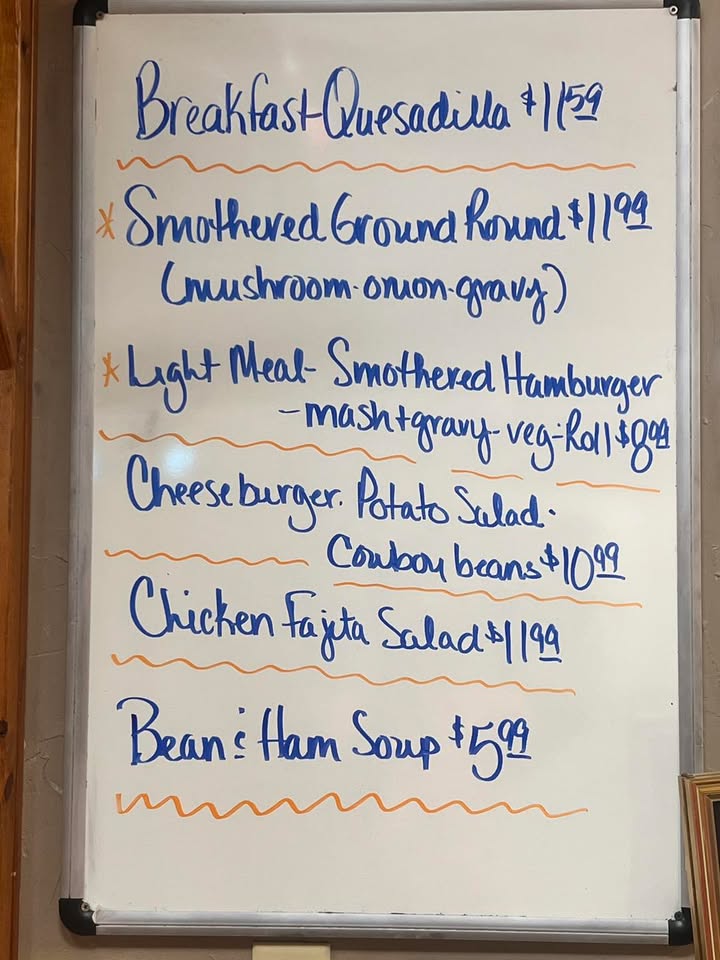 Breakfast Quesadilla $11 59
* Smothered Ground Round $11 99
(mushroom-onion-gravy)
* Light Meal- Smothered Hamburger
- mash+gravy- veg-Roll $8 99
Cheeseburger. Potato Salad.
Cowboy beans $10 99
Chicken Fajita Salad $11 99
Bean & Ham Soup $5 99